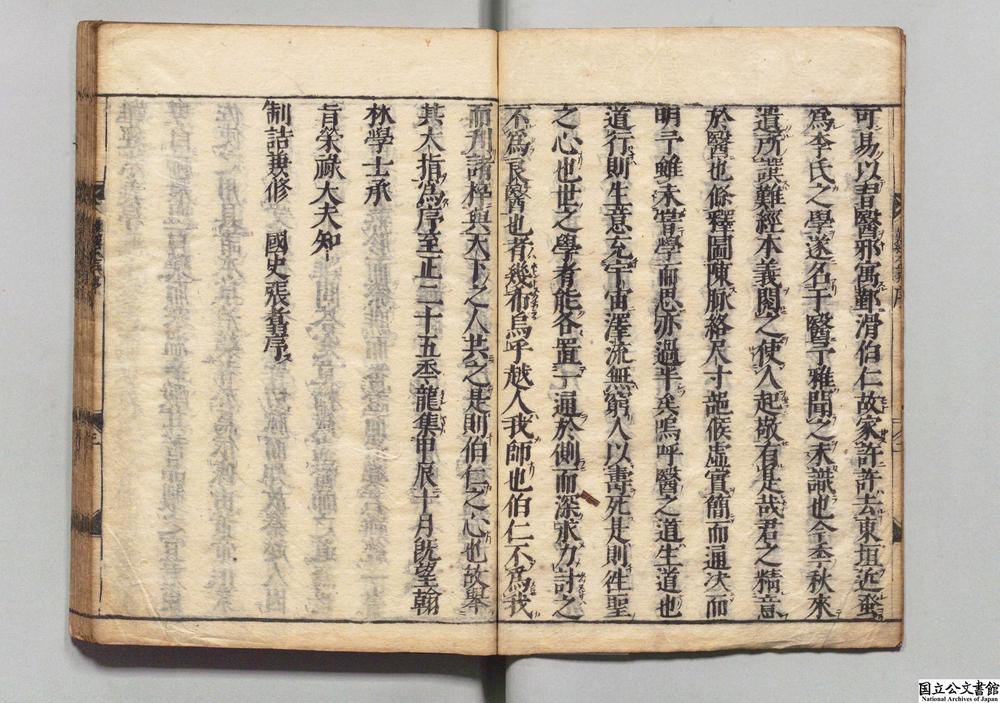 可易以言醫邪寓鄞滑伯仁故家許許去東垣近蚤
爲李氏之學遂名于醫予雅聞之未識也今季秋來
遺所譔難經本義閱之使人起敬有是哉君之精意
於醫也條釋圖陳脉絡尺寸部候虛實簡而通决而
明予雖未嘗學而思亦過半矣嗚呼醫之道生道也
道行則生意充宇宙澤流無窮人以壽死是則徃聖
之心也世之學者能各置一通於側而深求力討之
不爲良醫也者幾希嗚呼越人我師也伯仁不爲我
而刊諸梓與天下之人共之是則伯仁之心也故舉
其大指爲序至正二十五秊龍集甲辰十月旣望翰
林學士承
旨榮祿大夫知
制誥兼修　國史張翥序
国立公文書館
National Archives of Japan